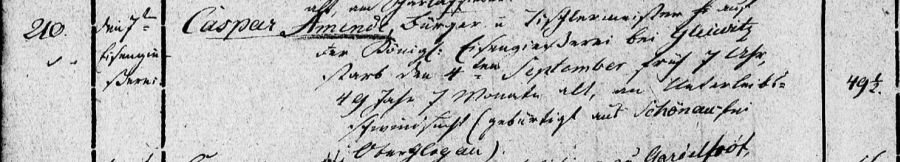 210. den 7t Caspar Amende, Bürger u Tischlermeister auf
Eisengie- der Königl: Eisengießerei bei Gleiwitz
ßerei. starb den 4ten September früh 7 Uhr,
49 Jahr 7 Monate alt, an Unterleibs- 49½.
schwindsucht (gebürtig aus Schönau bei
Oberglogau).